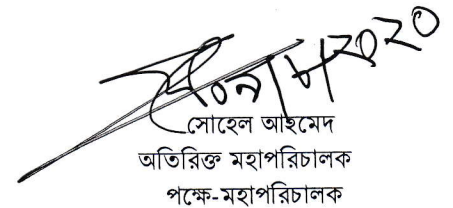 সোহেল আহমেদ
অতিরিক্ত মহাপরিচালক
পক্ষে-মহাপরিচালক